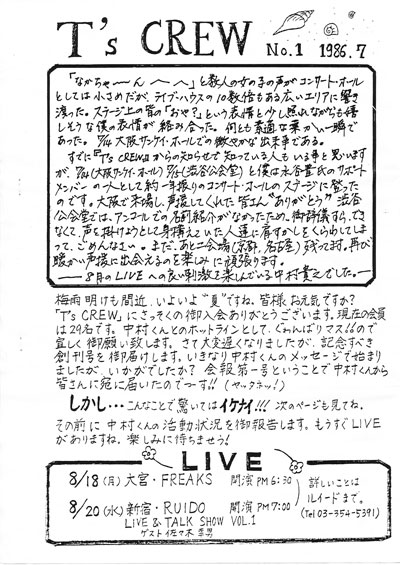 T's CREW No.1 1986.7
「なかちゃ〜ん へ へ」と数人の女の子の声がコンサート・ホール
としては小さめだが、ライブ・ハウスの10数倍もある広いエリアに響き
渡った。ステージ上の皆の「おや?」という表情と少し照れながらも嬉
しそうな僕の表情が絡み合った。何とも素適な栗かい一瞬で
あった。7/14 大阪サンケイ・ホールでの微やかな出来事である。
すでに『T's CREW』からの知らせで知っている人もいる事と思います
が、7/14(大阪サンケイ・ホール) 7/15(渋谷公会堂)と僕は永谷喬氏のサポート
メンバーの一人として約一年振りのコンサート・ホールのステージに登った
のです。大阪で来場し、声援してくれた皆さん"ありがとう"渋谷
公会堂では、アンコールでの名前紹介がなかったため、御挨拶すら、でき
なくて、声を掛けようとして身構えていた人達に肩すかしをくらわしてしま
って、ごめんなさい。まだ、あと二会場(京都、名古屋)残ってます。再び
暖かい声援に出会えるのを楽しみに頑張ります。
—— 8月のLIVEへの良い刺激を楽しんでいる中村貴之でした。——
梅雨明けも間近、いよいよ"夏"ですね。皆様お元気ですか?
「T's CREW」にさっそくの御入会ありがとうございます。現在の会員
は29名です。中村くんとのホットラインとして、ぐゎんばりマス!!ので
宜しく御願い致します。さて大変遅くなりましたが、記念すべき
創刊号を御届けします。いきなり中村くんのメッセージで始まり
ましたが、いかがでしたか? 会報第一号ということで中村くんから
皆さんに宛に届いたのでーす!! (ヤッタネッ!)
しかし・・・こんなことで驚いてはイケナイ!!! 次のページも見てね。
その前に中村くんの活動状況を御報告します。もうすぐLIVE
がありますね。楽しみに待ちませう!
LIVE
8/18(月) 大宮・FREAKS 開演PM6:30
8/20(水) 新宿・RUIDO 開演PM7:00
LIVE & TALK SHOW VOL.1
ゲスト 佐々木幸男
詳しいことは
ルイードまで。
(Tel 03-354-5391)